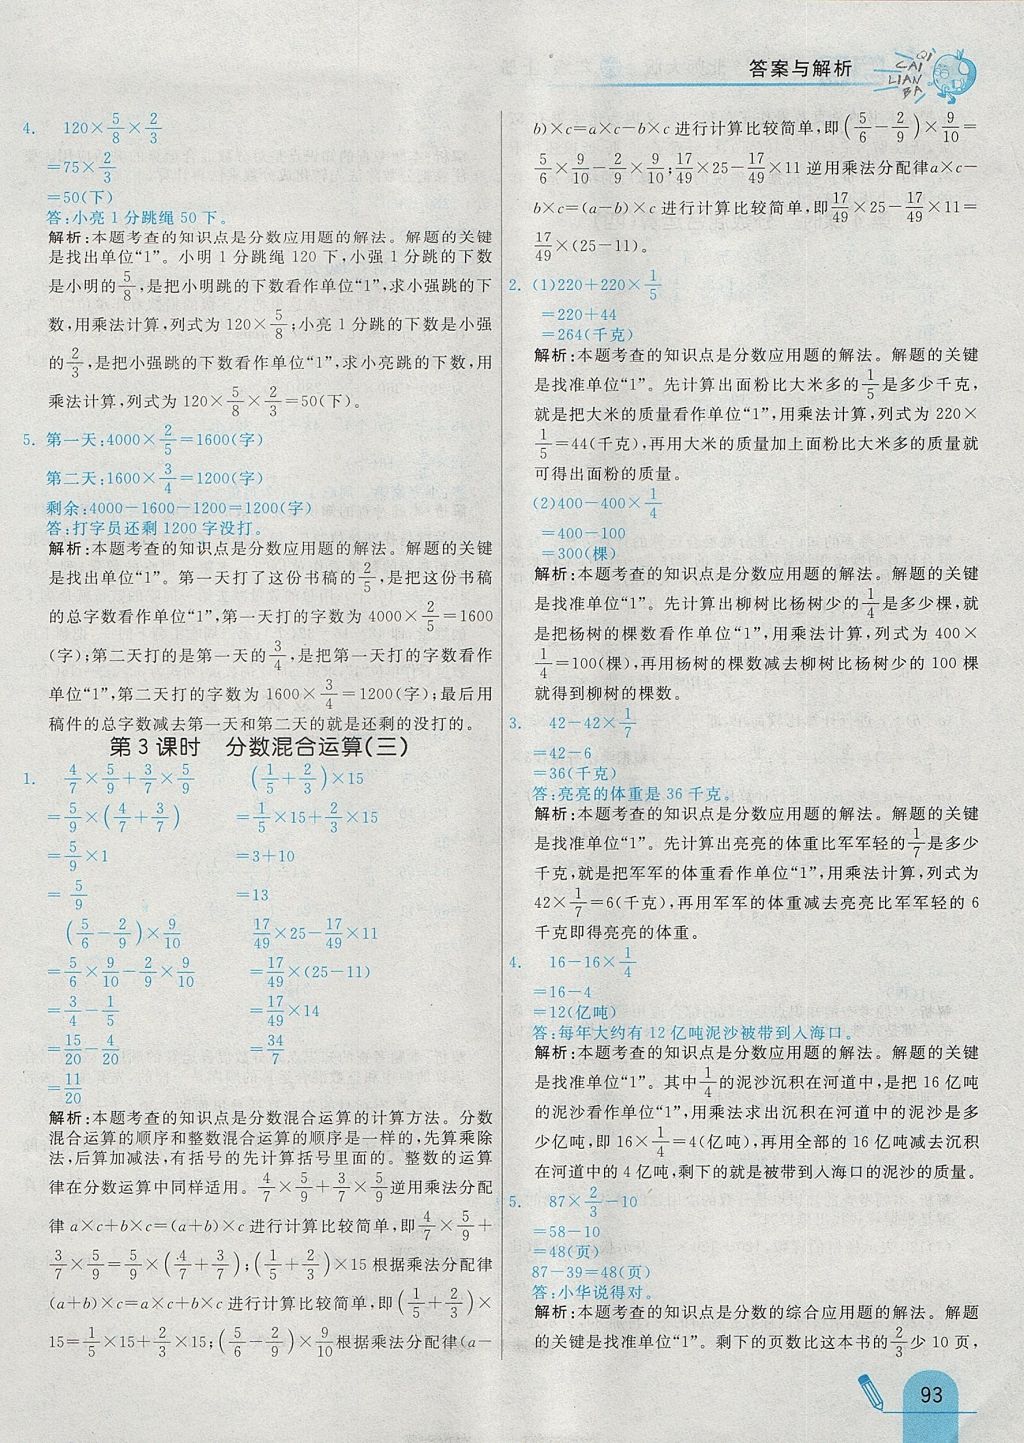 答案与解析
QI
CAI
LIAN
BA
4. 120×5/8×2/3
=75×2/3
=50(下)
答:小亮1分跳绳50下。
解析:本题考查的知识点是分数应用题的解法。解题的关键
是找出单位“1”。小明1分跳绳120下,小强1分跳的下数
是小明的5/8,是把小明跳的下数看作单位“1”,求小强跳的下
数,用乘法计算,列式为120×5/8;小亮1分跳的下数是小强
的2/3,是把小强跳的下数看作单位“1”,求小亮跳的下数,用
乘法计算,列式为120×5/8×2/3=50(下)。
5. 第一天:4000×2/5=1600(字)
第二天:1600×3/4=1200(字)
剩余:4000-1600-1200=1200(字)
答:打字员还剩1200字没打。
解析:本题考查的知识点是分数应用题的解法。解题的关键
是找出单位“1”。第一天打了这份书稿的2/5,是把这份书稿
的总字数看作单位“1”,第一天打的字数为4000×2/5=1600
(字);第二天打的是第一天的3/4,是把第一天打的字数看作
单位“1”,第二天打的字数为1600×3/4=1200(字);最后用
稿件的总字数减去第一天和第二天的就是还剩的没打的。
第3课时 分数混合运算(三)
1. 4/7×5/9+3/7×5/9 (1/5+2/3)×15
=5/9×(4/7+3/7) =1/5×15+2/3×15
=5/9×1 =3+10
=5/9 =13
(5/6-2/9)×9/10 17/49×25-17/49×11
=5/6×9/10-2/9×9/10 =17/49×(25-11)
=3/4-1/5 =17/49×14
=15/20-4/20 =34/7
=11/20
解析:本题考查的知识点是分数混合运算的计算方法。分数
混合运算的顺序和整数混合运算的顺序是一样的,先算乘除
法,后算加减法,有括号的先计算括号里面的。整数的运算
律在分数运算中同样适用。4/7×5/9+3/7×5/9逆用乘法分配
律a×c+b×c=(a+b)×c进行计算比较简单,即4/7×5/9+
3/7×5/9=5/9×(4/7+3/7);(1/5+2/3)×15根据乘法分配律
(a+b)×c=a×c+b×c进行计算比较简单,即(1/5+2/3)×
15=1/5×15+2/3×15;(5/6-2/9)×9/10根据乘法分配律(a-
b)×c=a×c-b×c进行计算比较简单,即(5/6-2/9)×9/10=
5/6×9/10-2/9×9/10;17/49×25-17/49×11逆用乘法分配律a×c-
b×c=(a-b)×c进行计算比较简单,即17/49×25-17/49×11=
17/49×(25-11)。
2. (1)220+220×1/5
=220+44
=264(千克)
解析:本题考查的知识点是分数应用题的解法。解题的关键
是找准单位“1”。先计算出面粉比大米多的1/5是多少千克,
就是把大米的质量看作单位“1”,用乘法计算,列式为220×
1/5=44(千克),再用大米的质量加上面粉比大米多的质量就
可得出面粉的质量。
(2)400-400×1/4
=400-100
=300(棵)
解析:本题考查的知识点是分数应用题的解法。解题的关键
是找准单位“1”。先计算出柳树比杨树少的1/4是多少棵,就
是把杨树的棵数看作单位“1”,用乘法计算,列式为400×
1/4=100(棵),再用杨树的棵数减去柳树比杨树少的100棵
就得到柳树的棵数。
3. 42-42×1/7
=42-6
=36(千克)
答:亮亮的体重是36千克。
解析:本题考查的知识点是分数应用题的解法。解题的关键
是找准单位“1”。先计算出亮亮的体重比军军轻的1/7是多少
千克,就是把军军的体重看作单位“1”,用乘法计算,列式为
42×1/7=6(千克),再用军军的体重减去亮亮比军军轻的6
千克即得亮亮的体重。
4. 16-16×1/4
=16-4
=12(亿吨)
答:每年大约有12亿吨泥沙被带到入海口。
解析:本题考查的知识点是分数应用题的解法。解题的关键
是找准单位“1”。其中1/4的泥沙沉积在河道中,是把16亿吨
的泥沙看作单位“1”,用乘法求出沉积在河道中的泥沙是多
少亿吨,即16×1/4=4(亿吨),再用全部的16亿吨减去沉积
在河道中的4亿吨,剩下的就是被带到入海口的泥沙的质量。
5. 87×2/3-10
=58-10
=48(页)
87-39=48(页)
答:小华说得对。
解析:本题考查的知识点是分数的综合应用题的解法。解题
的关键是找准单位“1”。剩下的页数比这本书的2/3少10页,
93